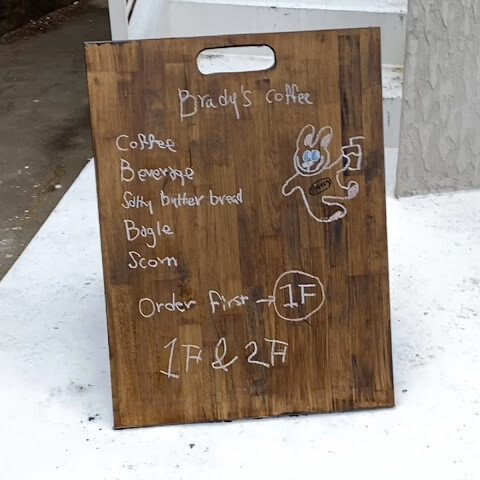 Brady's coffee
Coffee
Beverage
Salty butter bread
Bagle
Scorn
Order First → 1F
1F & 2F